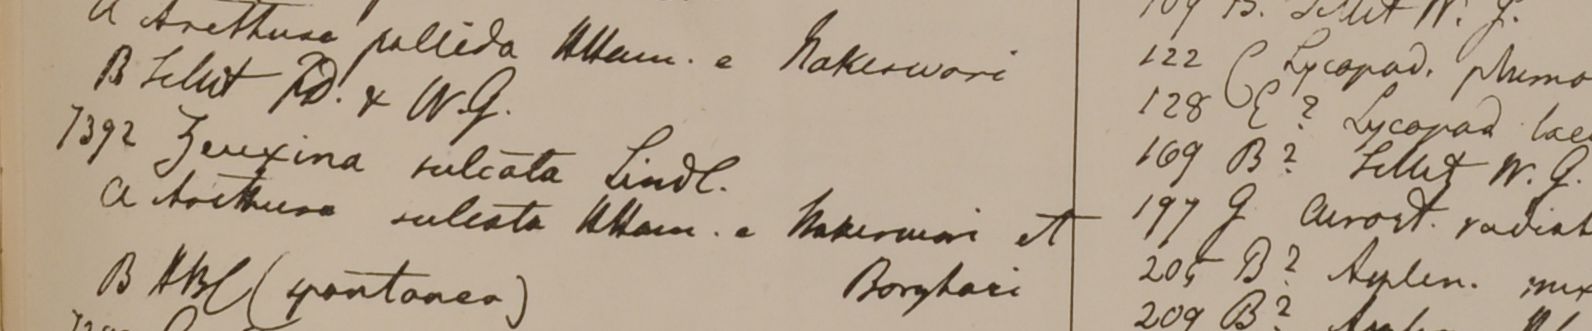 a Arethusa pallida HHam. e Nakerwori
B Sillet FD. & W.G.
7392 Zeuxina sulcata Lindl.
a Arethusa sulcata HHam. e Nakerwori et
Borghari
B HBC (spontanea)
109 B. Sillet W. G.
122 Lycopod. plumo
128 E? Lycopod lae
169 B? Sillet W. G.
197 G radiat
205 B? Asplen. mix
209 B?